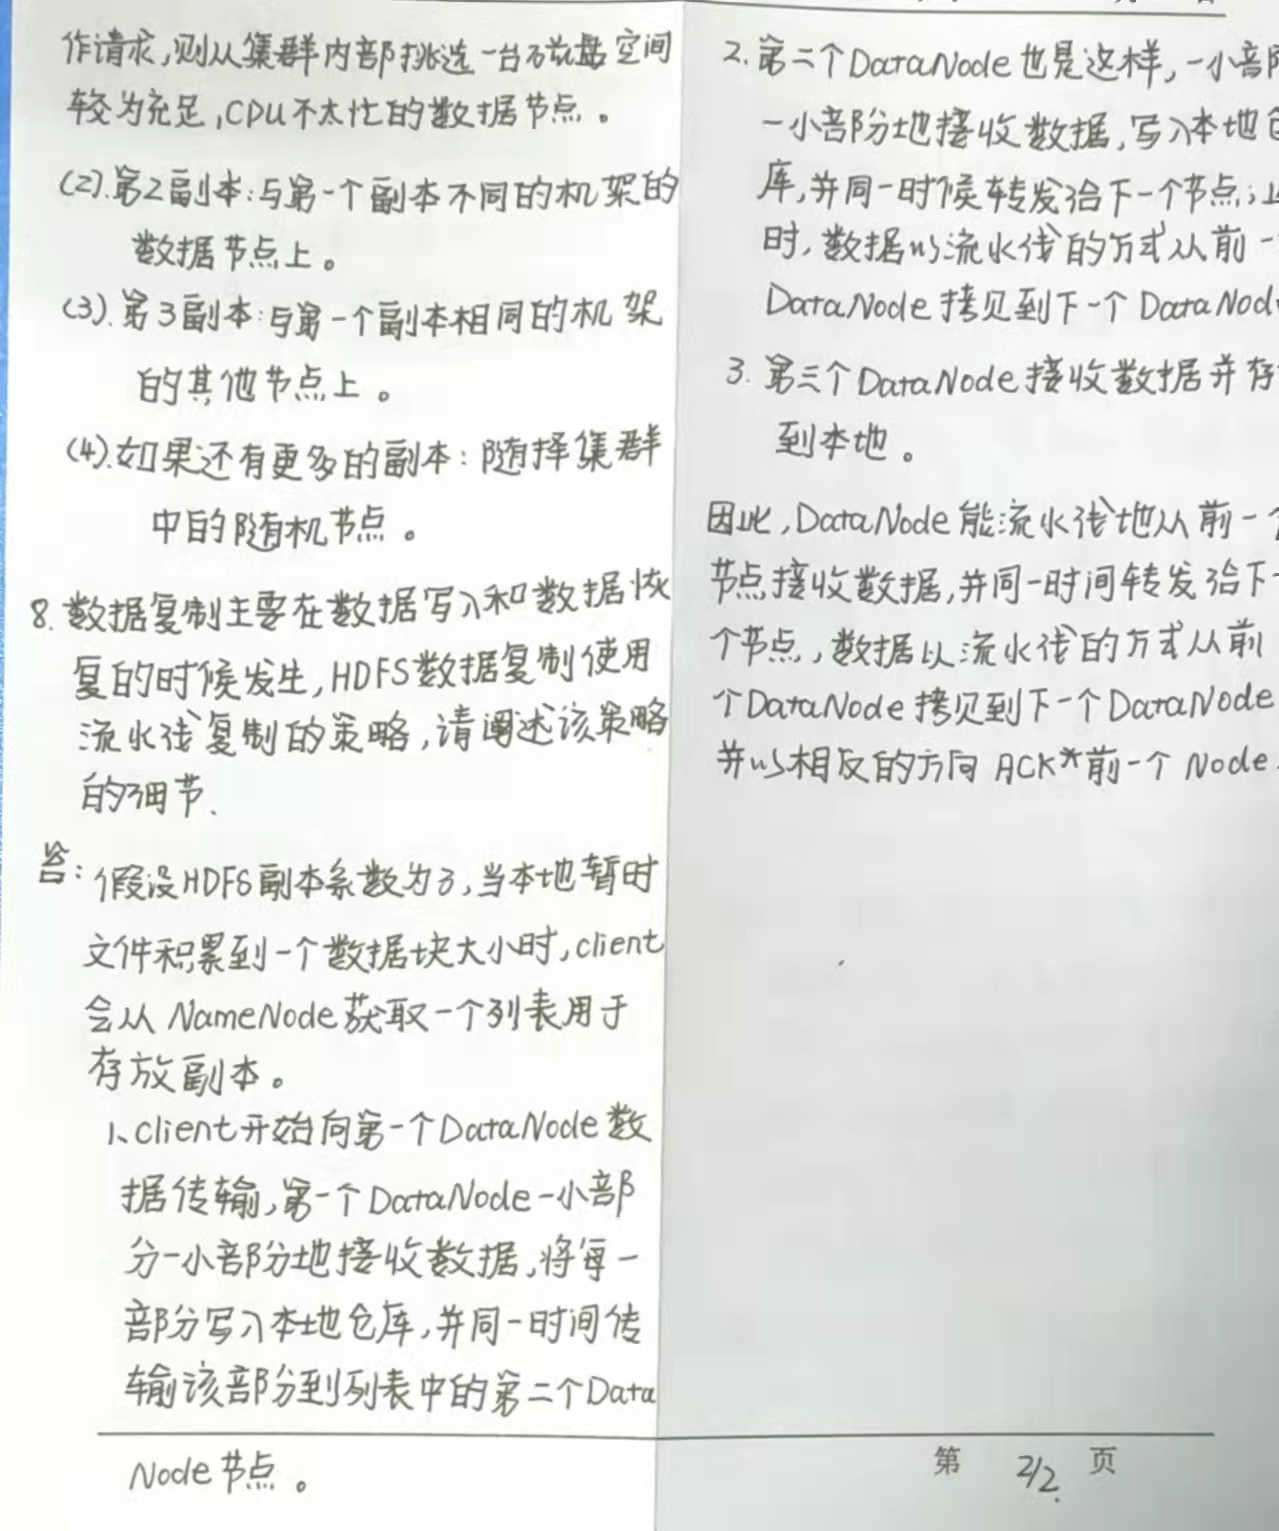 作请求,则从集群内部挑选一台磁盘空间
较为充足,CPU不太忙的数据节点。
(2).第2副本:与第一个副本不同的机架的
数据节点上。
(3).第3副本:与第一个副本相同的机架
的其他节点上。
(4).如果还有更多的副本:随择集群
中的随机节点。
8.数据复制主要在数据写入和数据恢
复的时候发生,HDFS数据复制使用
流水线复制的策略,请阐述该策略
的细节.
答:假设HDFS副本系数为3,当本地暂时
文件积累到一个数据块大小时,client
会从NameNode获取一个列表用于
存放副本。
1、client开始向第一个DataNode数
据传输,第一个DataNode一小部
分一小部分地接收数据,将每一
部分写入本地仓库,并同一时间传
输该部分到列表中的第二个Data
Node节点。
2.第二个DataNode也是这样,一小部
一小部分地接收数据,写入本地
库,并同一时候转发给下一个节点;
时,数据以流水线的方式从前一
DataNode拷贝到下一个DataNod
3.第三个DataNode接收数据并存
到本地。
因此,DataNode能流水线地从前一个
节点接收数据,并同一时间转发给下一
个节点,数据以流水线的方式从前
个DataNode拷贝到下一个DataNode
并以相反的方向ACK*前一个Node.
第 2/2 页